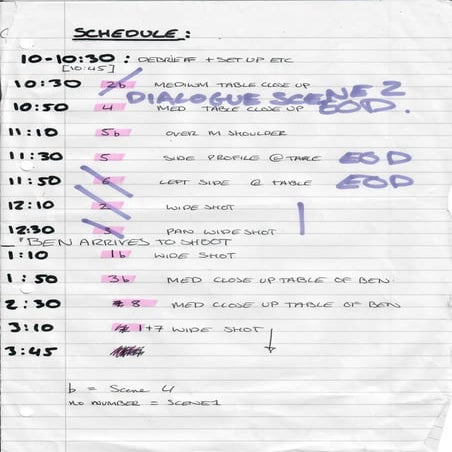 SCHEDULE:
10-10:30 : DEBRIEF + SET UP ETC
[10:45]
10:30 2b MEDIUM TABLE CLOSE UP
DIALOGUE SCENE 2
10:50 4 MED TABLE CLOSE UP EOD.
11:10 5b OVER M SHOULDER
11:30 5 SIDE PROFILE @ TABLE EOD
11:50 6 LEFT SIDE @ TABLE EOD
12:10 2 WIDE SHOT
12:30 3 PAN WIDE SHOT
* BEN ARRIVES TO SHOOT
1:10 1b WIDE SHOT
1:50 3b MED CLOSE UP TABLE OF BEN
2:30 8 MED CLOSE UP TABLE OF BEN
3:10 1+7 WIDE SHOT
3:45
b = Scene 4
no number = SCENE 1